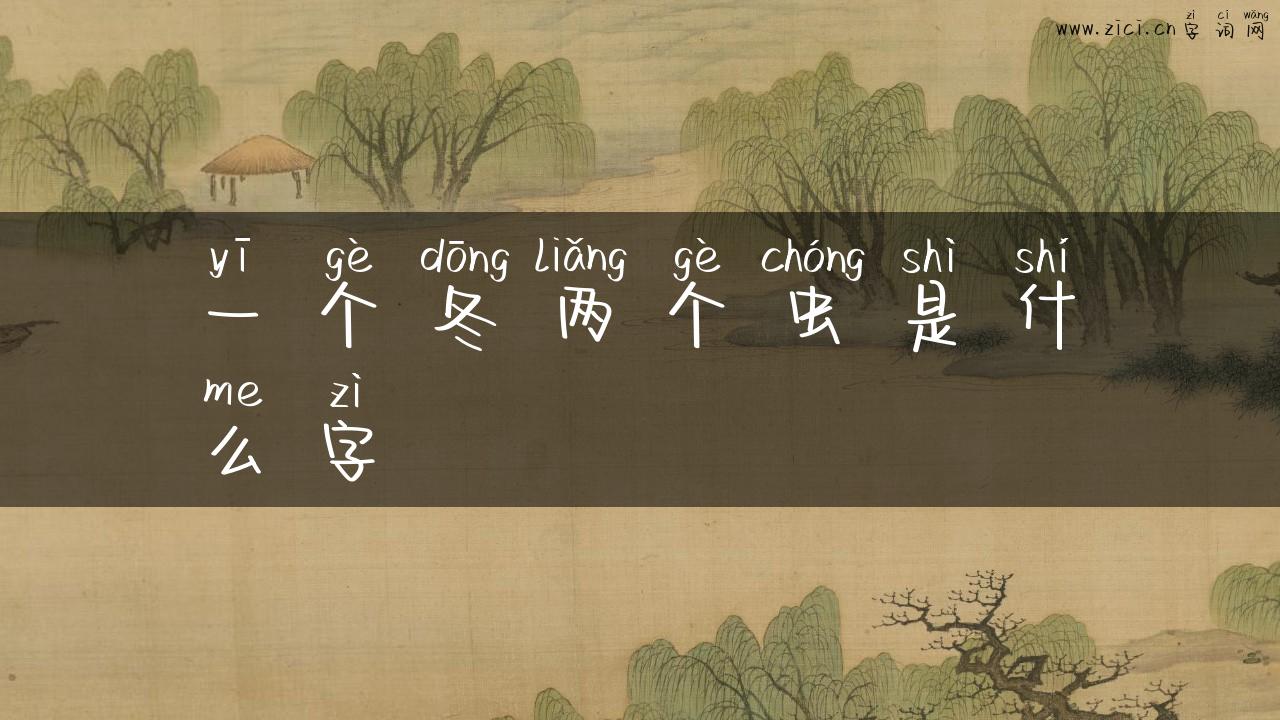 zì cí wǎng
www.zici.cn 字 词 网
yī gè dōng liǎng gè chóng shì shí
一 个 冬 两 个 虫 是 什
me zì
么 字